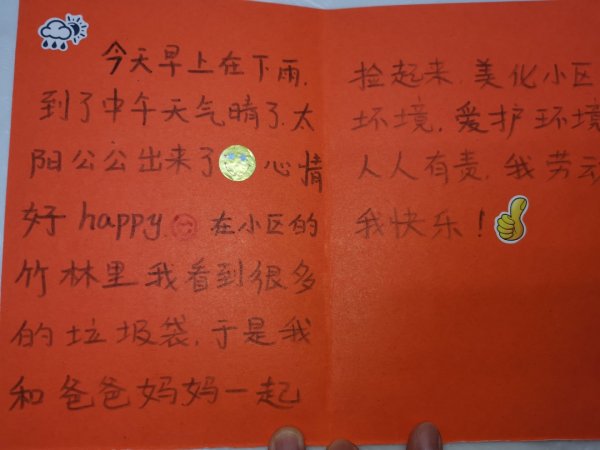 今天早上在下雨.
到了中午天气晴了.太
阳公公出来了心情
好happy.在小区的
竹林里我看到很多
的垃圾袋.于是我
和爸爸妈妈一起
捡起来.美化小区
环境.爱护环境
人人有责.我劳动
我快乐！